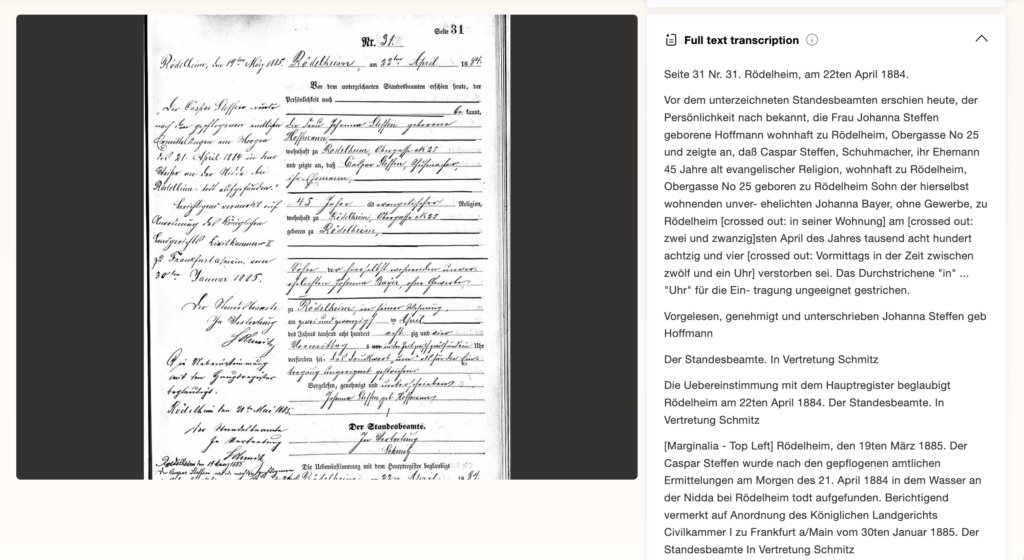 Seite 31
Nr. 31.
Rödelheim, den 19ten März 1885.
Rödelheim, am 22ten April 1884.
Vor dem unterzeichneten Standesbeamten erschien heute, der
Persönlichkeit nach
be kannt,
die Frau Johanna Steffen geborene
Hoffmann
wohnhaft zu Rödelheim, Obergasse No 25
und zeigte an, daß Caspar Steffen, Schuhmacher,
ihr Ehemann,
45 Jahre alt evangelischer Religion,
wohnhaft zu Rödelheim, Obergasse No 25
geboren zu Rödelheim,
Sohn der hierselbst wohnenden unver-
ehelichten Johanna Bayer, ohne Gewerbe
zu Rödelheim, in seiner Wohnung
am zwei und zwanzigsten April
des Jahres tausend acht hundert achtzig und vier
Vormittags
Uhr
verstorben sei.
tragung ungeeignet gestrichen.
Vorgelesen, genehmigt und unterschrieben
Johanna Steffen geb Hoffmann
Der Standesbeamte.
In Vertretung
Schmitz
Die Uebereinstimmung mit dem Hauptregister beglaubigt
Rödelheim am 22ten April 1884.
Der Caspar Steffen wurde
nach den gepflogenen amtlichen
Ermittelungen am Morgen
des 21. April 1884 in dem
Wasser an der Nidda bei
Rödelheim todt aufgefunden.
Berichtigend vermerkt auf
Anordnung des Königlichen
Landgerichts Civilkammer I
zu Frankfurt a/Main vom
30ten Januar 1885.
Der Standesbeamte
In Vertretung
Schmitz
Die Uebereinstimmung
mit dem Hauptregister
beglaubigt.
Rödelheim den 20ten Mai 1885.
Der Standesbeamte
In Vertretung
Schmitz
Rödelheim den 19 März 1885
Full text transcription
Seite 31 Nr. 31. Rödelheim, am 22ten April 1884.
Vor dem unterzeichneten Standesbeamten erschien heute, der
Persönlichkeit nach bekannt, die Frau Johanna Steffen
geborene Hoffmann wohnhaft zu Rödelheim, Obergasse No 25
und zeigte an, daß Caspar Steffen, Schuhmacher, ihr Ehemann
45 Jahre alt evangelischer Religion, wohnhaft zu Rödelheim,
Obergasse No 25 geboren zu Rödelheim Sohn der hierselbst
wohnenden unver- ehelichten Johanna Bayer, ohne Gewerbe, zu
Rödelheim [crossed out: in seiner Wohnung] am [crossed out:
zwei und zwanzig]sten April des Jahres tausend acht hundert
achtzig und vier [crossed out: Vormittags in der Zeit zwischen
zwölf und ein Uhr] verstorben sei. Das Durchstrichene "in" ...
"Uhr" für die Ein- tragung ungeeignet gestrichen.
Vorgelesen, genehmigt und unterschrieben Johanna Steffen geb
Hoffmann
Der Standesbeamte. In Vertretung Schmitz
Die Uebereinstimmung mit dem Hauptregister beglaubigt
Rödelheim am 22ten April 1884. Der Standesbeamte. In
Vertretung Schmitz
[Marginalia - Top Left] Rödelheim, den 19ten März 1885. Der
Caspar Steffen wurde nach den gepflogenen amtlichen
Ermittelungen am Morgen des 21. April 1884 in dem Wasser an
der Nidda bei Rödelheim todt aufgefunden. Berichtigend
vermerkt auf Anordnung des Königlichen Landgerichts
Civilkammer I zu Frankfurt a/Main vom 30ten Januar 1885. Der
Standesbeamte In Vertretung Schmitz